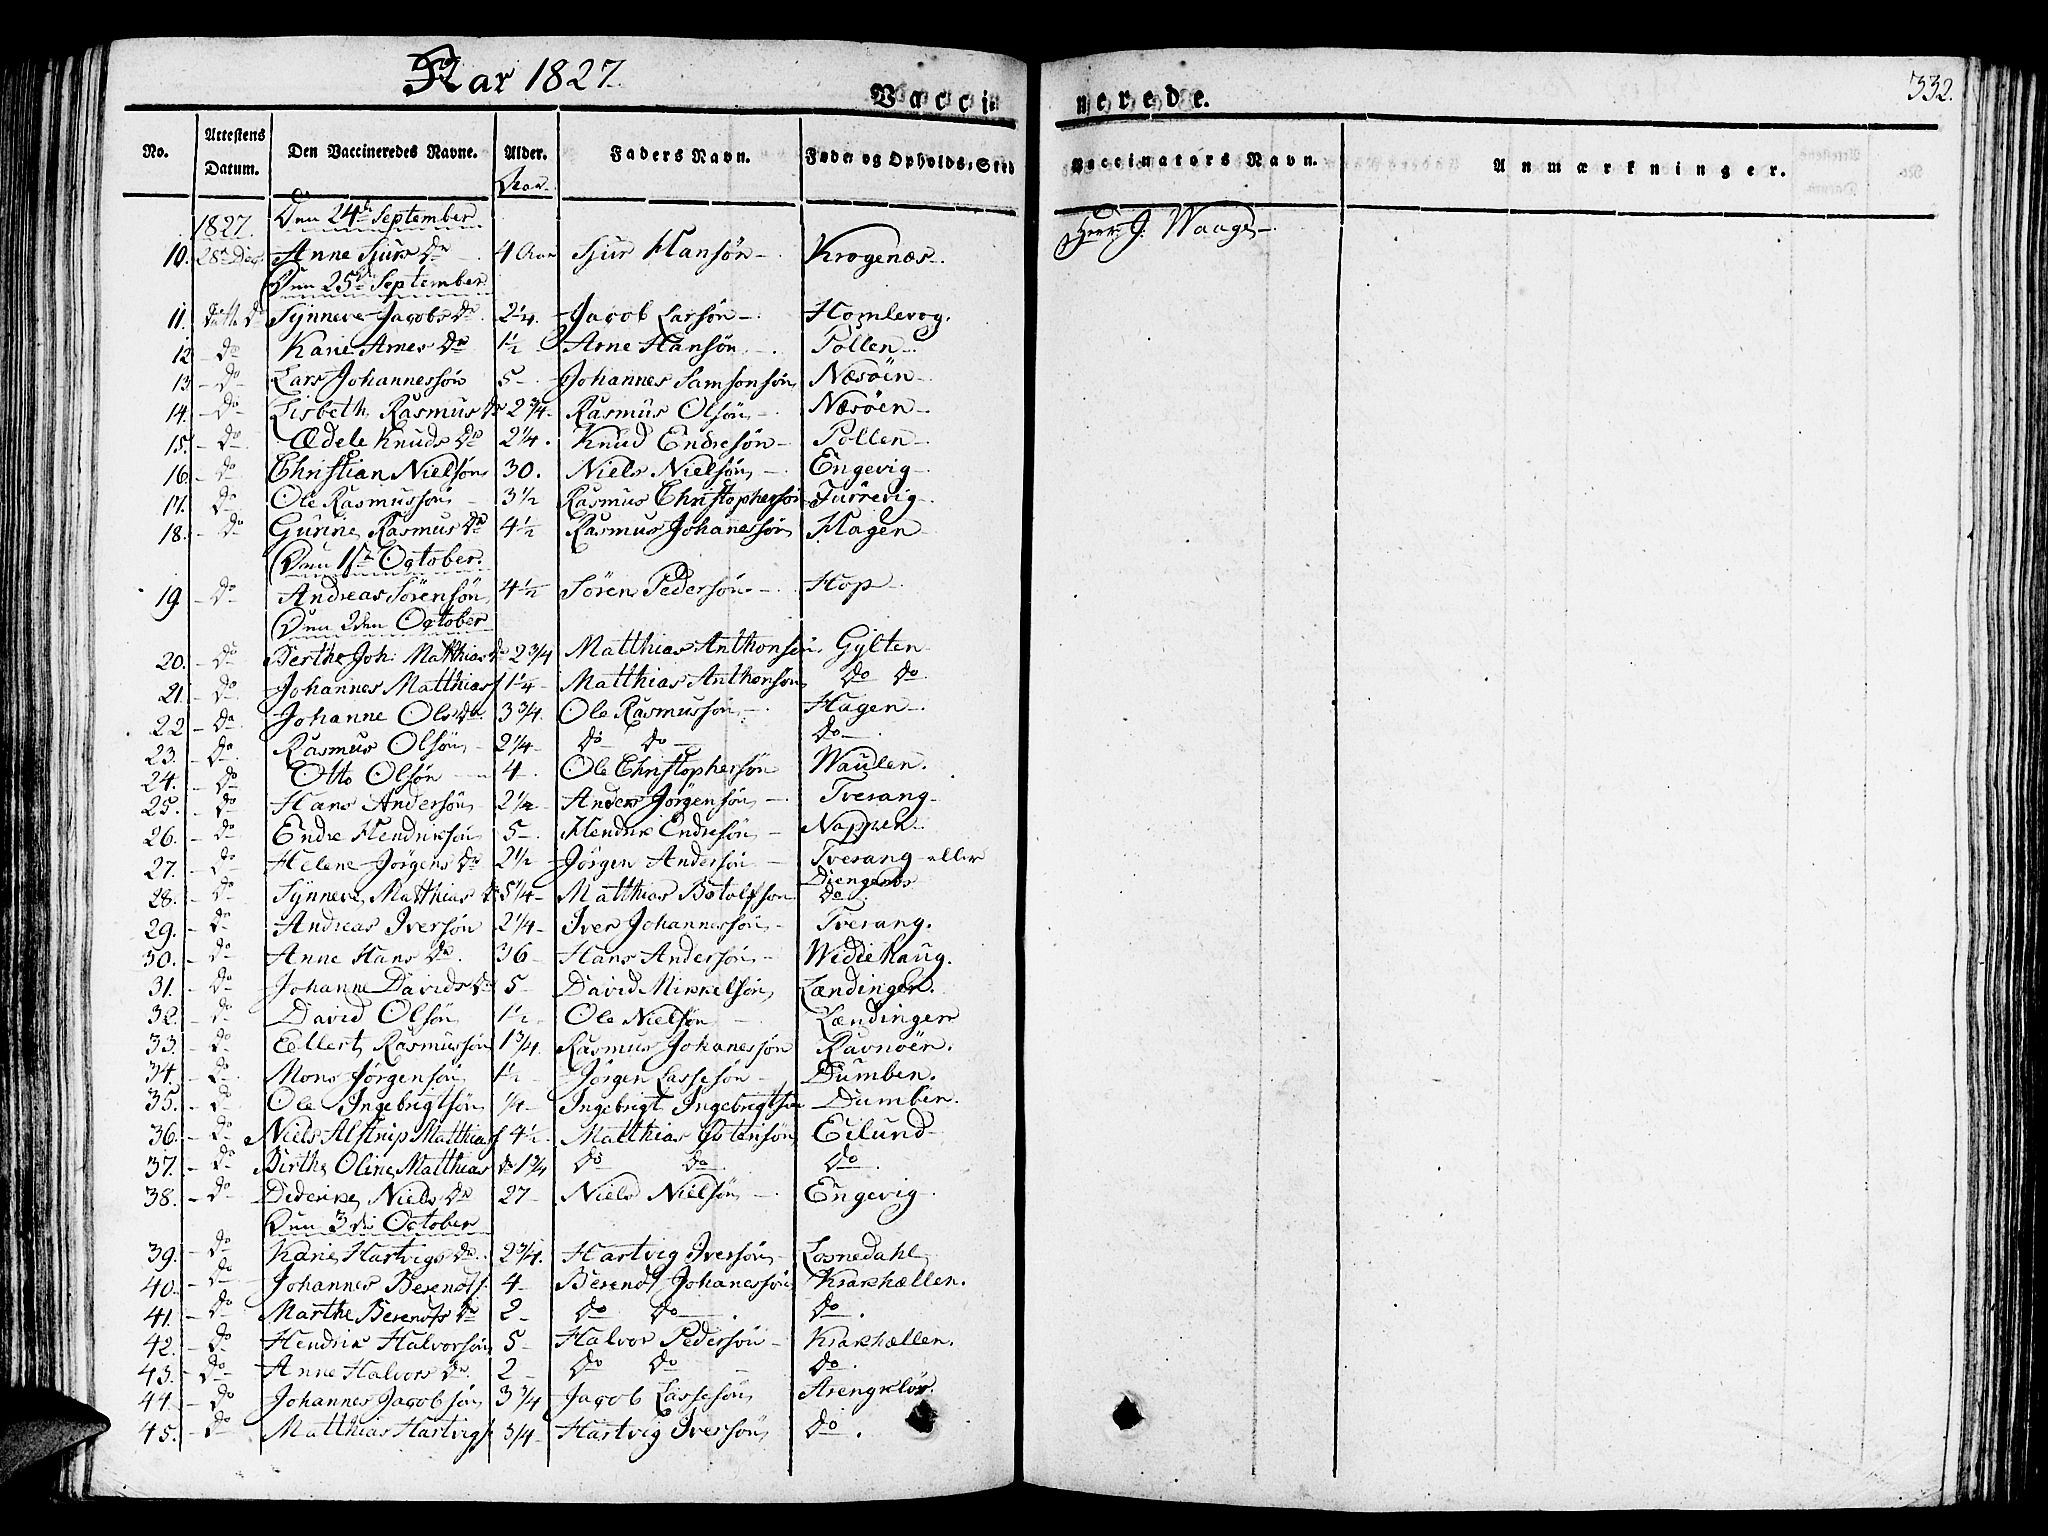 Aar 1827.
Vaccinerede.
332.
No. Attestens Datum. Den Vaccineredes Navne. Alder. Faders Navn. Føde og Opholds-Sted Vaccinators Navn. Anmærkninger.
Aar.
1827. Den 24de September
10. 28de Dec. Anne Sjurs Dr 4 Aar Sjur Hansøn Krogenæs. Herr J. Waage
Den 25de September
11. Ditto Do Synneve Jacobs Dr 2 1/4. Jacob Larsøn Homlevog.
12 Do Karie Arnes Dr 1 1/2 Arne Hansøn Pollen
13 Do Lars Johannessøn 5 Johannes Samsonsøn Næsøen
14. Do Lisbeth Rasmus Dr 2 3/4. Rasmus Olsøn Næsøen
15. Do Ædele Knuds Dr 2 1/4. Knud Endresøn Pollen
16 Do Christian Nielsøn 30. Niels Nielsøn Engevig
17. Do Ole Rasmussøn 3 1/2 Rasmus Christophersøn Furrevig
18. Do Gurine Rasmus Dr 4 1/2 Rasmus Johannessøn Hagen
Den 1ste October.
19 Do Andreas Sørensøn 4 1/2 Søren Pedersøn Hop
Den 2den October
20. Do Berthe Joh: Matthias Dr 2 3/4 Matthias Anthonsøn. Gylten
21 Do Johannes Matthias 1 1/4 Matthias Anthonsøn Do Do
22 Do Johanne Ols Dr 3 3/4. Ole Rasmussøn Hagen
23. Do Rasmus Olsøn 2 1/4 Do Do Do
24. Do Otto Olsøn 4 Ole Christophersøn Waulen.
25. Do Hans Andersøn 2 1/2 Anders Jørgensøn Tverang
26. Do Endre Hendriksøn 5 Hendrik Endresøn Nappen
27. Do Helene Jørgens Dr 2 1/2 Jørgen Andersøn Tverang eller
Diengenes
28. Do Synneve Matthias Dr 5 1/4 Matthias Botolfson Do
29. Do Andreas Iversøn 2 1/4 Iver Johannessøn Tverang.
30. Do Anne Hans Dr. 36 Hans Andersøn Widdehaug.
31. Do Johanne Davids Dr 5 David Mikkelsøn Lændingen.
32. Do David Olsøn 1 1/2 Ole Nielsøn Lændingen
33. Do Eellert Rasmussøn 1 3/4. Rasmus Johanessøn Ravnøen.
34. Do Mons Jørgensøn 1 1/2 Jørgen Lassesøn Dumben.
35. Do Ole Ingebrigtsøn 1/4 Ingebrigt Ingebrigtsøn Dumben.
36. Do Niels Alstrup Matthias 4 1/2. Matthias Ostensøn Eilund
37. Do Birthe Oline Matthias Dr 1 3/4 Do Do Do
38. Do Diderike Niels Dr 27 Niels Nielsøn Engevig
Den 3die October
39. Do Karie Hartvigs Dr. 2 3/4. Hartvig Iversøn Losnedahl
40. Do Johannes Berendts. 4 Berendt Johanessøn Krakhællen.
41. Do Marthe Berendts Dr 2 Do Do Do.
42. Do Hendrik Halvorsøn 5 Halvor Pedersøn Krakhællen.
43. Do Anne Halvors Dr. 2 Do Do Do.
44. Do Johannes Jacobsøn 3 3/4 Jacob Lassesøn
45. Do Matthias Hartvigs 3/4 Hartvig Iversøn Do.